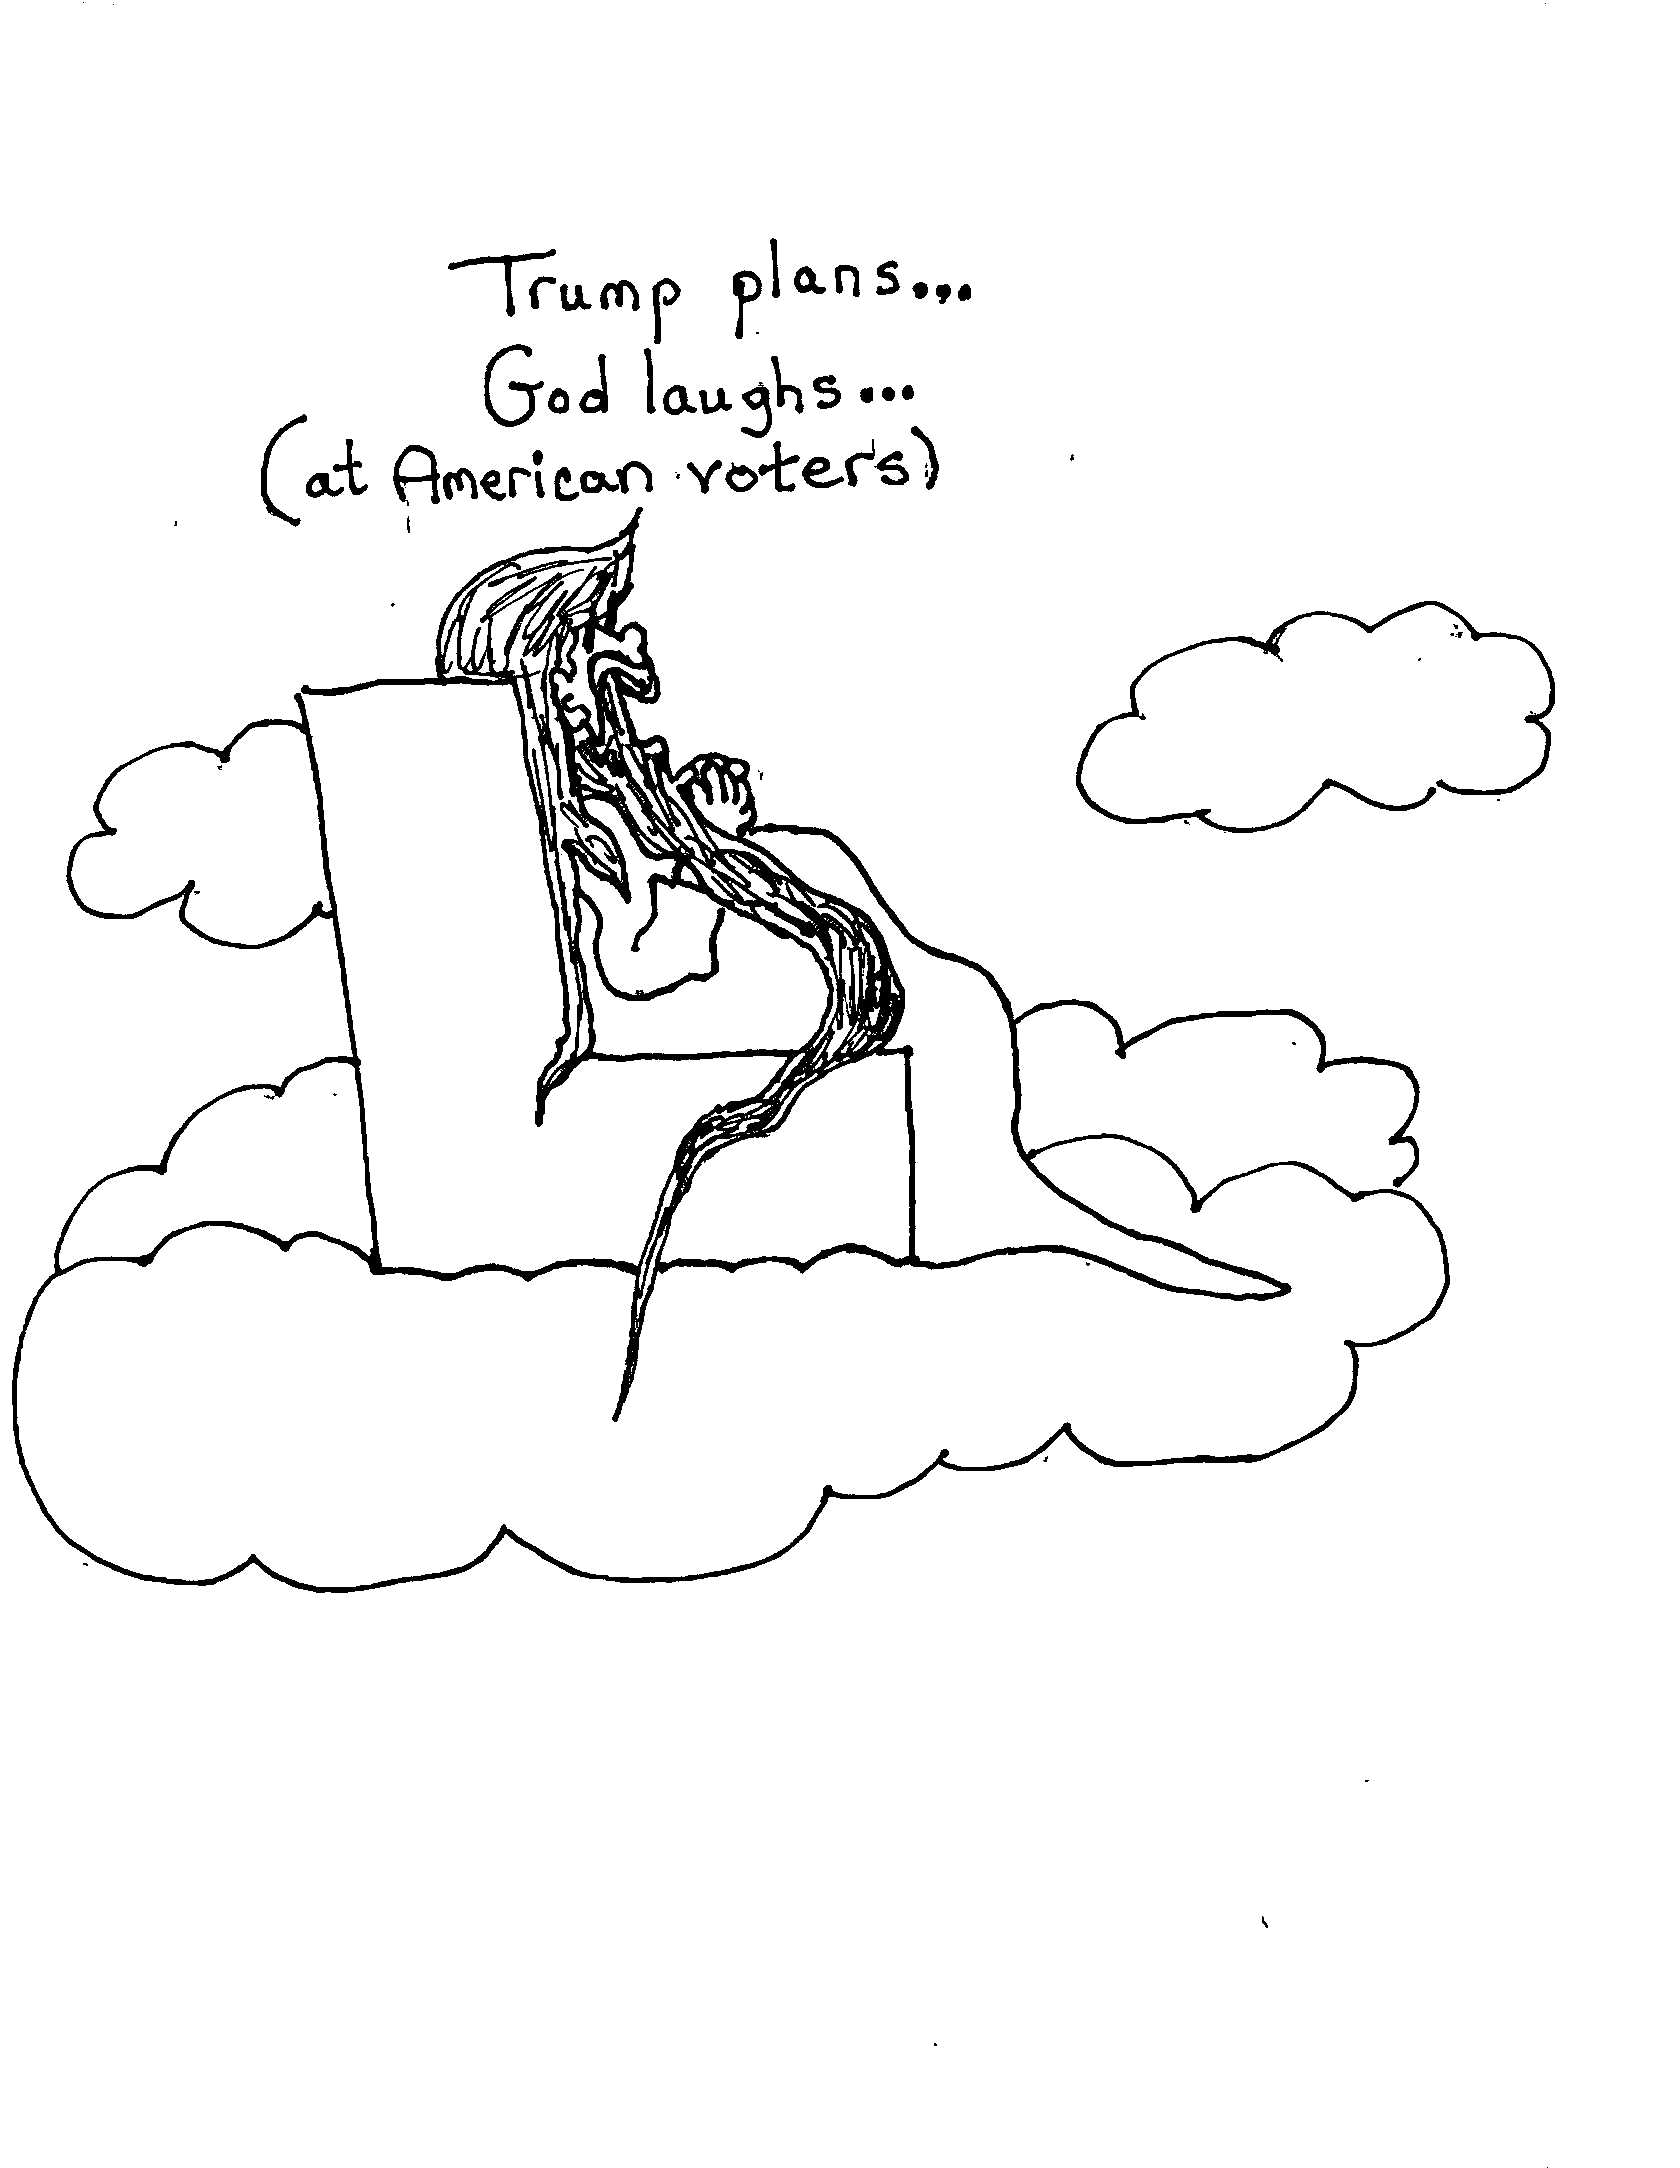 Trump plans...
God laughs...
(at American voters)